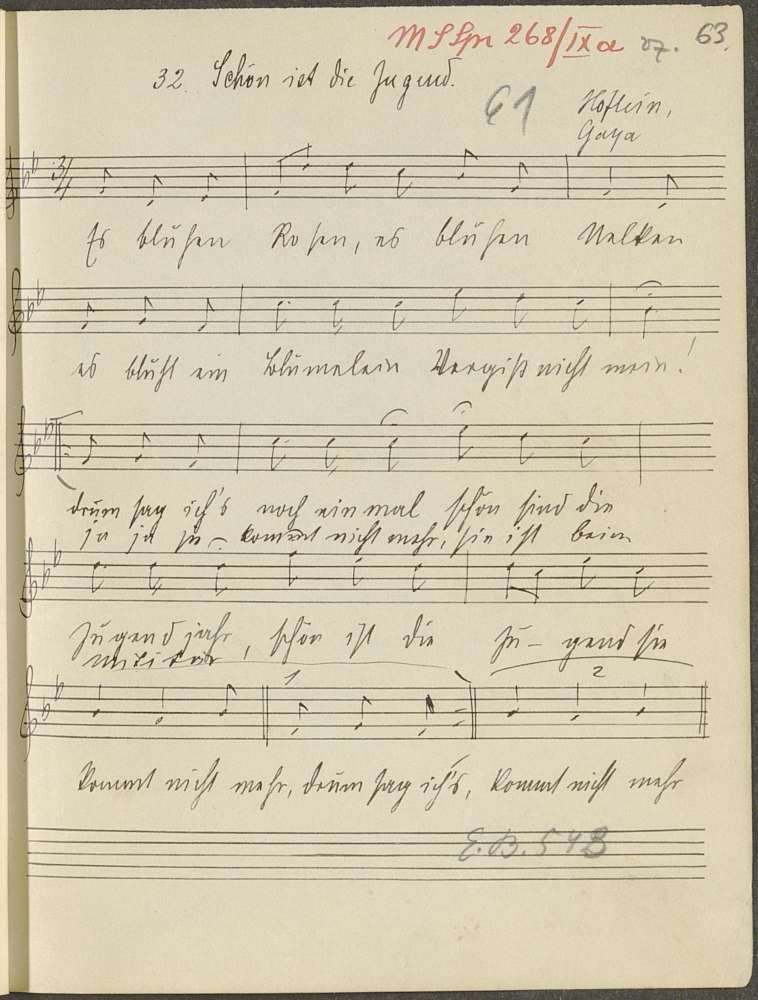 MSSpr 268/IXa 27. 63.
32. Schön ist die Jugend.
61
Höflein,
Gaya
3/4
Es blühen Rosen, es blühen Nelken
es blüht ein Blümelein Vergißnichtmein!
drum sag ich's noch einmal schön sind die
ja ja ja kommt nicht mehr, sie ist beim
Jugendjahr, schön ist die Ju-gend sie
militär
1 2
kommt nicht mehr, drum sag ich's, kommt nicht mehr
E.B. 548